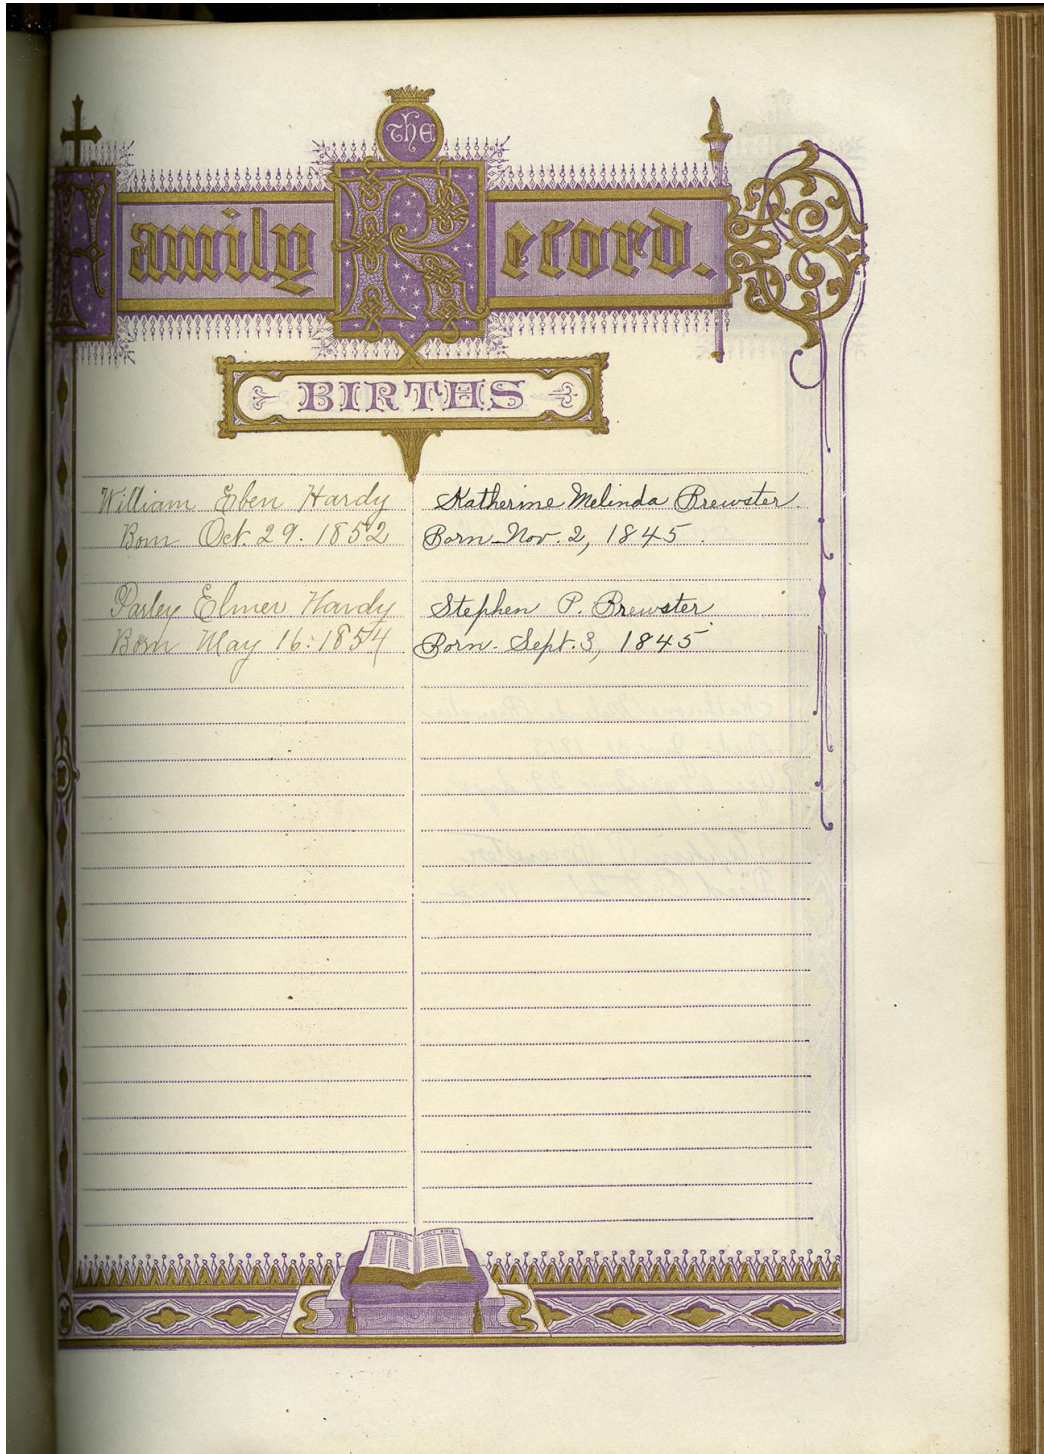 The
Family Record.
BIRTHS
William Eben Hardy
Born Oct. 29. 1852
Parley Elmer Hardy
Born May 16. 1854
Katherine Melinda Brewster.
Born Nov. 2, 1845.
Stephen P. Brewster
Born. Sept. 3, 1845
HOLY BIBLE HOLY BIBLE